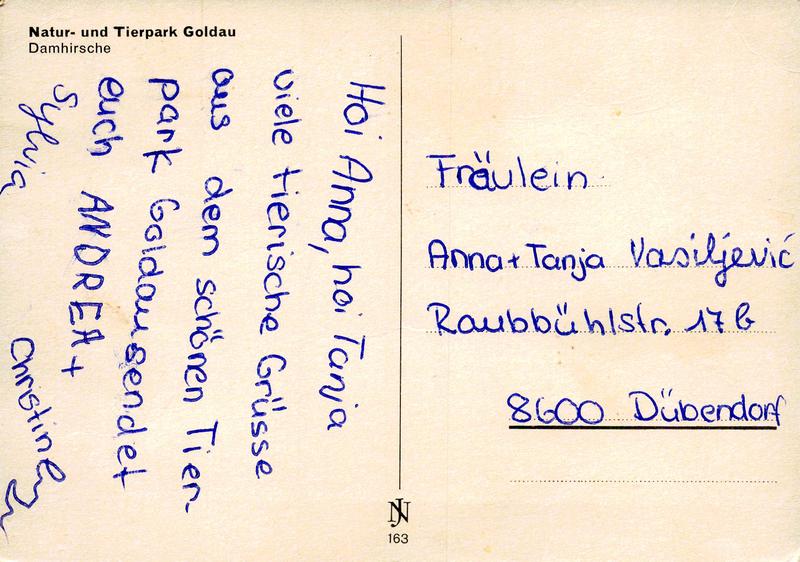 Natur- und Tierpark Goldau
Damhirsche
Hoi Anna, hoi Tanja
viele tierische Grüsse
aus dem schönen Tier-
park Goldau sendet
euch ANDREA+
Sylvia
Christine
Fräulein
Anna+Tanja Vasiljević
Raubbühlstr. 17b
8600 Dübendorf
JN
163